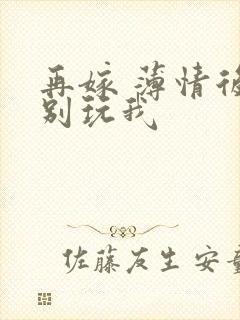 再嫁 薄情後
别玩我
佐藤友生 安童